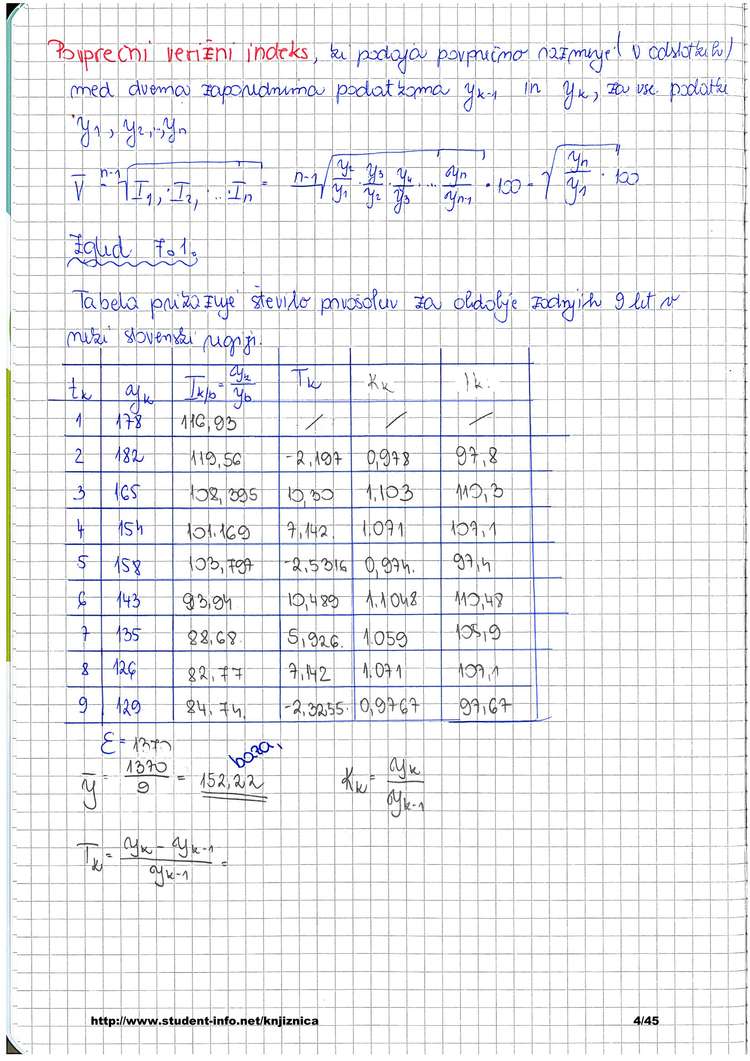 Povprečni verižni indeks, ki podaja povprečno razmerje (v odstotkih)
med dvema zaporednima podatkoma yk-1 in yk, za vse podatke
y1, y2,..,yn
V̄ = n-1√(I1, · I2, · ... · In) = n-1√(y2/y1 · y3/y2 · y4/y3 · ... · yn/yn-1) · 100 = √(yn/y1) · 100
Zgled 7.1.
Tabela prikazuje število prvošolcev za obdobje zadnjih 9 let v
neki slovenski regiji.
tk yk Ik/b = yk/yb Tk Kk Ik.
1 178 116,93 / / /
2 182 119,56 -2,197 0,978 97,8
3 165 108,395 10,30 1,103 110,3
4 154 101.169 7,142. 1.071 107,1
5 158 103,797 -2,5316 0,974. 97,4
6 143 93,94 10,489 1.1048 110,48
7 135 88,68. 5,926. 1.059 105,9
8 126 82,77 7,142 1.071 107,1
9 129 84.74. -2,3255. 0,9767 97,67
Σ = 1370
baza.
ȳ = 1370/9 = 152,22
Kk = yk/yk-1
Tk = (yk - yk-1)/yk-1 =
http://www.student-info.net/knjiznica 4/45